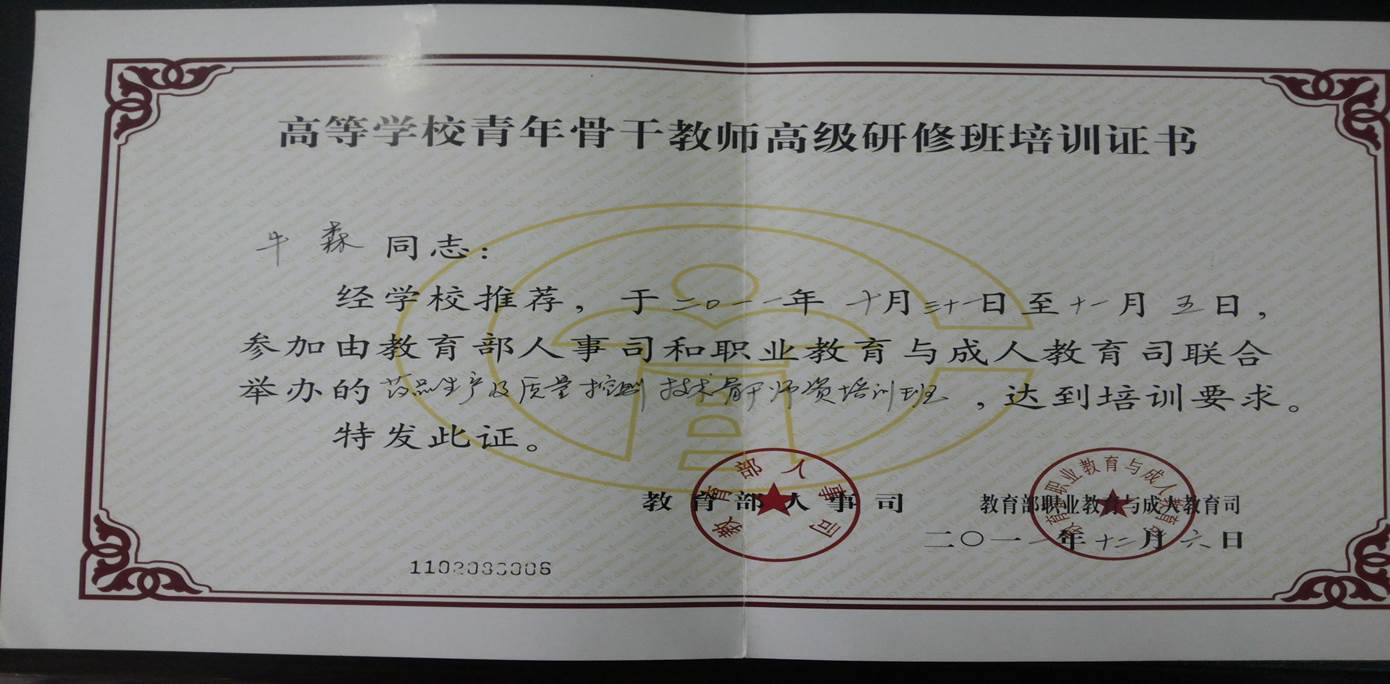 高等学校青年骨干教师高级研修班培训证书
牛森同志：
经学校推荐，于二〇一一年十月三十一日至十一月五日，
参加由教育部人事司和职业教育与成人教育司联合
举办的药品生产及质量控制技术骨干师资培训班，达到培训要求。
特发此证。
教育部人事司
教育部人事司
教育部职业教育与成人教育司
教育部职业教育与成人教育司
二〇一一年十二月六日